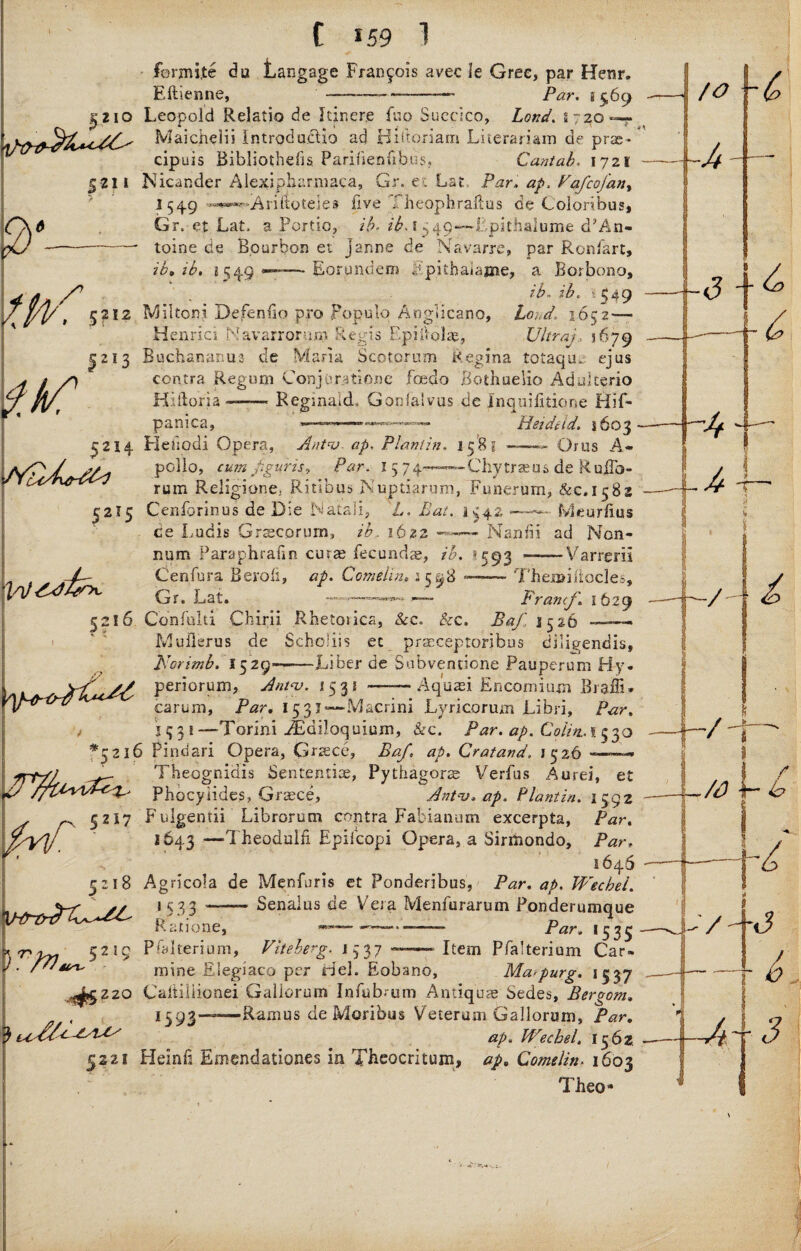 [ 159 ]
formité du Langage François avec le Grec, par Henr.
Estienne, ——— Par. 1569 — 10 - 6
5210 Leopold Relatio de Itinere suo Succico, Lond. 1720 —
Maichelii Introductio ad Historiam Literariam de præ-
cipuis Bibliothesis Parisiensibus, Cantab. 1721 — - 4 -
5211 Nicander Alexipharmaca, Gr. et Lat. Par. ap. Vascosan,
1549 —— Aristoteles sive Theophrastus de Coloribus,
Gr. et Lat. a Portio, ib. ib. 1549—Epithalume d'An-
Do —— toine de Bourbon et Janne de Navarre, par Ronsart,
ib. ib. 1549 —— Eorundem Epithalame, a Borbono,
ib. ib. 1549 — - 3 - 6
5212 Miltoni Defensio pro Populo Anglicano, Lond. 1652 —
Henrici Navarrorum Regis Epistolæ, Ultraj. 1679 — - 6
5213 Buchananus de Maria Scotorum Regina totaque ejus
contra Regum Conjuratione fœdo Bothuelio Adulterio
Historia —— Reginald. Gonsalvus de Inquisitione His-
panica, ——— Heideld. 1603 — - 4 -
5214 Hesiodi Opera, Antv. ap. Plantin. 1581 —— Orus A-
pollo, cum figuris, Par. 1574——Chytræus de Russo-
rum Religione, Ritibus Nuptiarum, Funerum, &c. 1582 — - 4 -
5215 Censorinus de Die Natali, L. Bat. 1542 —— Meursius
de Ludis Græcorum, ib. 1622 —— Nansii ad Non-
num Paraphrasin curæ secundæ, ib. 1593 ——Varrerii
Censura Berosi, ap. Comelin. 1598 —— Themistocles,
Gr. Lat. ——— Francf. 1629 — - / - 6
5216 Consulti Chirii Rhetorica, &c. &c. Bas. 1526 ——
Muslerus de Scholiis et præceptoribus diligendis,
Norimb. 1529——Liber de Subventione Pauperum Hy-
periorum, Antv. 1531 —— Aquæi Encomium Brassi-
carum, Par. 1531—Macrini Lyricorum Libri, Par.
1531—Torini Ædiloquium, &c. Par. ap. Colin. 1530 — - / -
*5216 Pindari Opera, Græcé, Bas. ap. Cratand. 1526 ——
Theognidis Sententiæ, Pythagoræ Versus Aurei, et
Phocylides, Græcé, Antv. ap. Plantin. 1592 — - 10 - 6
5217 Fulgentii Librorum contra Fabianum excerpta, Par.
1643 —Theodulfi Episcopi Opera, a Sirmondo, Par.
1646 — - 6
5218 Agricola de Mensuris et Ponderibus, Par. ap. Wechel.
1533 —— Senalus de Vera Mensurarum Ponderumque
Ratione, ——— Par. 1535 — - / - 3
5219 Psalterium, Viteberg. 1537 —— Item Psalterium Car-
mine Elegiaco per Hel. Eobano, Marpurg. 1537 — - 6
5220 Castillionei Gallorum Insubrum Antiquæ Sedes, Bergom.
1593——Ramus de Moribus Veterum Gallorum, Par.
ap. Wechel. 1562 — - 4 - 3
5221 Heinsi Emendationes in Theocritum, ap. Comelin. 1603
Theo-